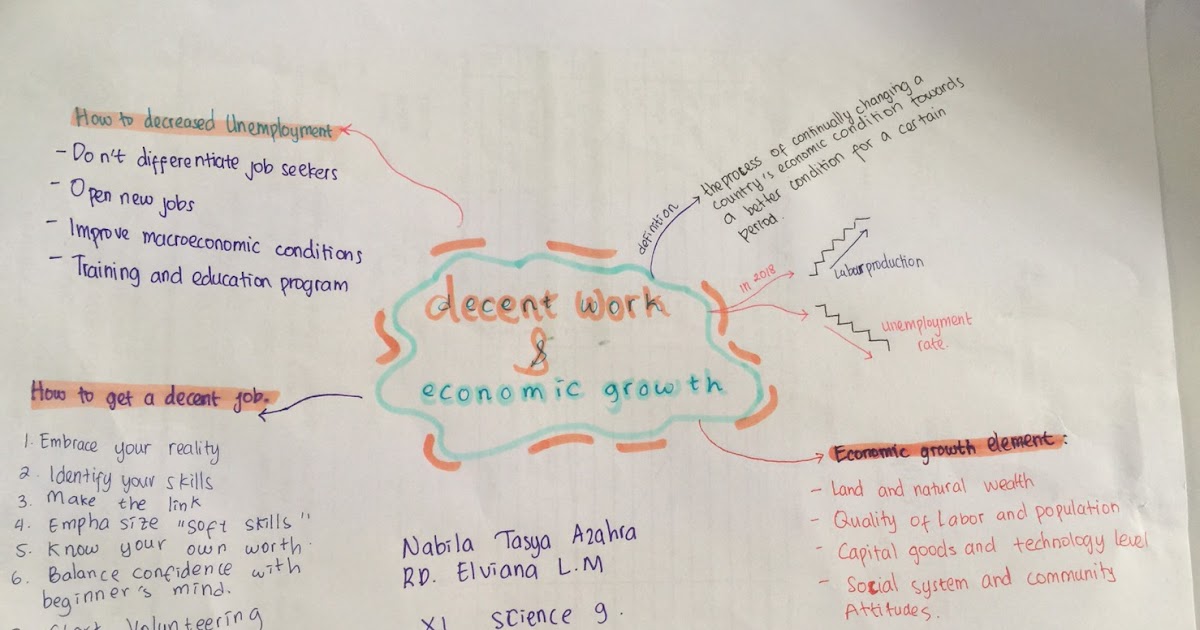 How to decreased Unemployment
- Don't differentiate job seekers
- Open new jobs
- Improve macroeconomic conditions
- Training and education program
definition
the process of continually changing a
country's economic condition towards
a better condition for a certain
period.
in 2018
Labor production
unemployment
rate.
decent work
&
economic growth
How to get a decent job.
1. Embrace your reality
2. Identify your skills
3. Make the link
4. Empha size "soft skills"
5. Know your own worth.
6. Balance confidence with
beginner's mind.
Start Volunteering
Economic growth element:
- Land and natural wealth
- Quality of Labor and population
- Capital goods and technology level
- Social system and community
Attitudes.
Nabila Tasya Azahra
RD. Elviana L.M
XI Science 9.